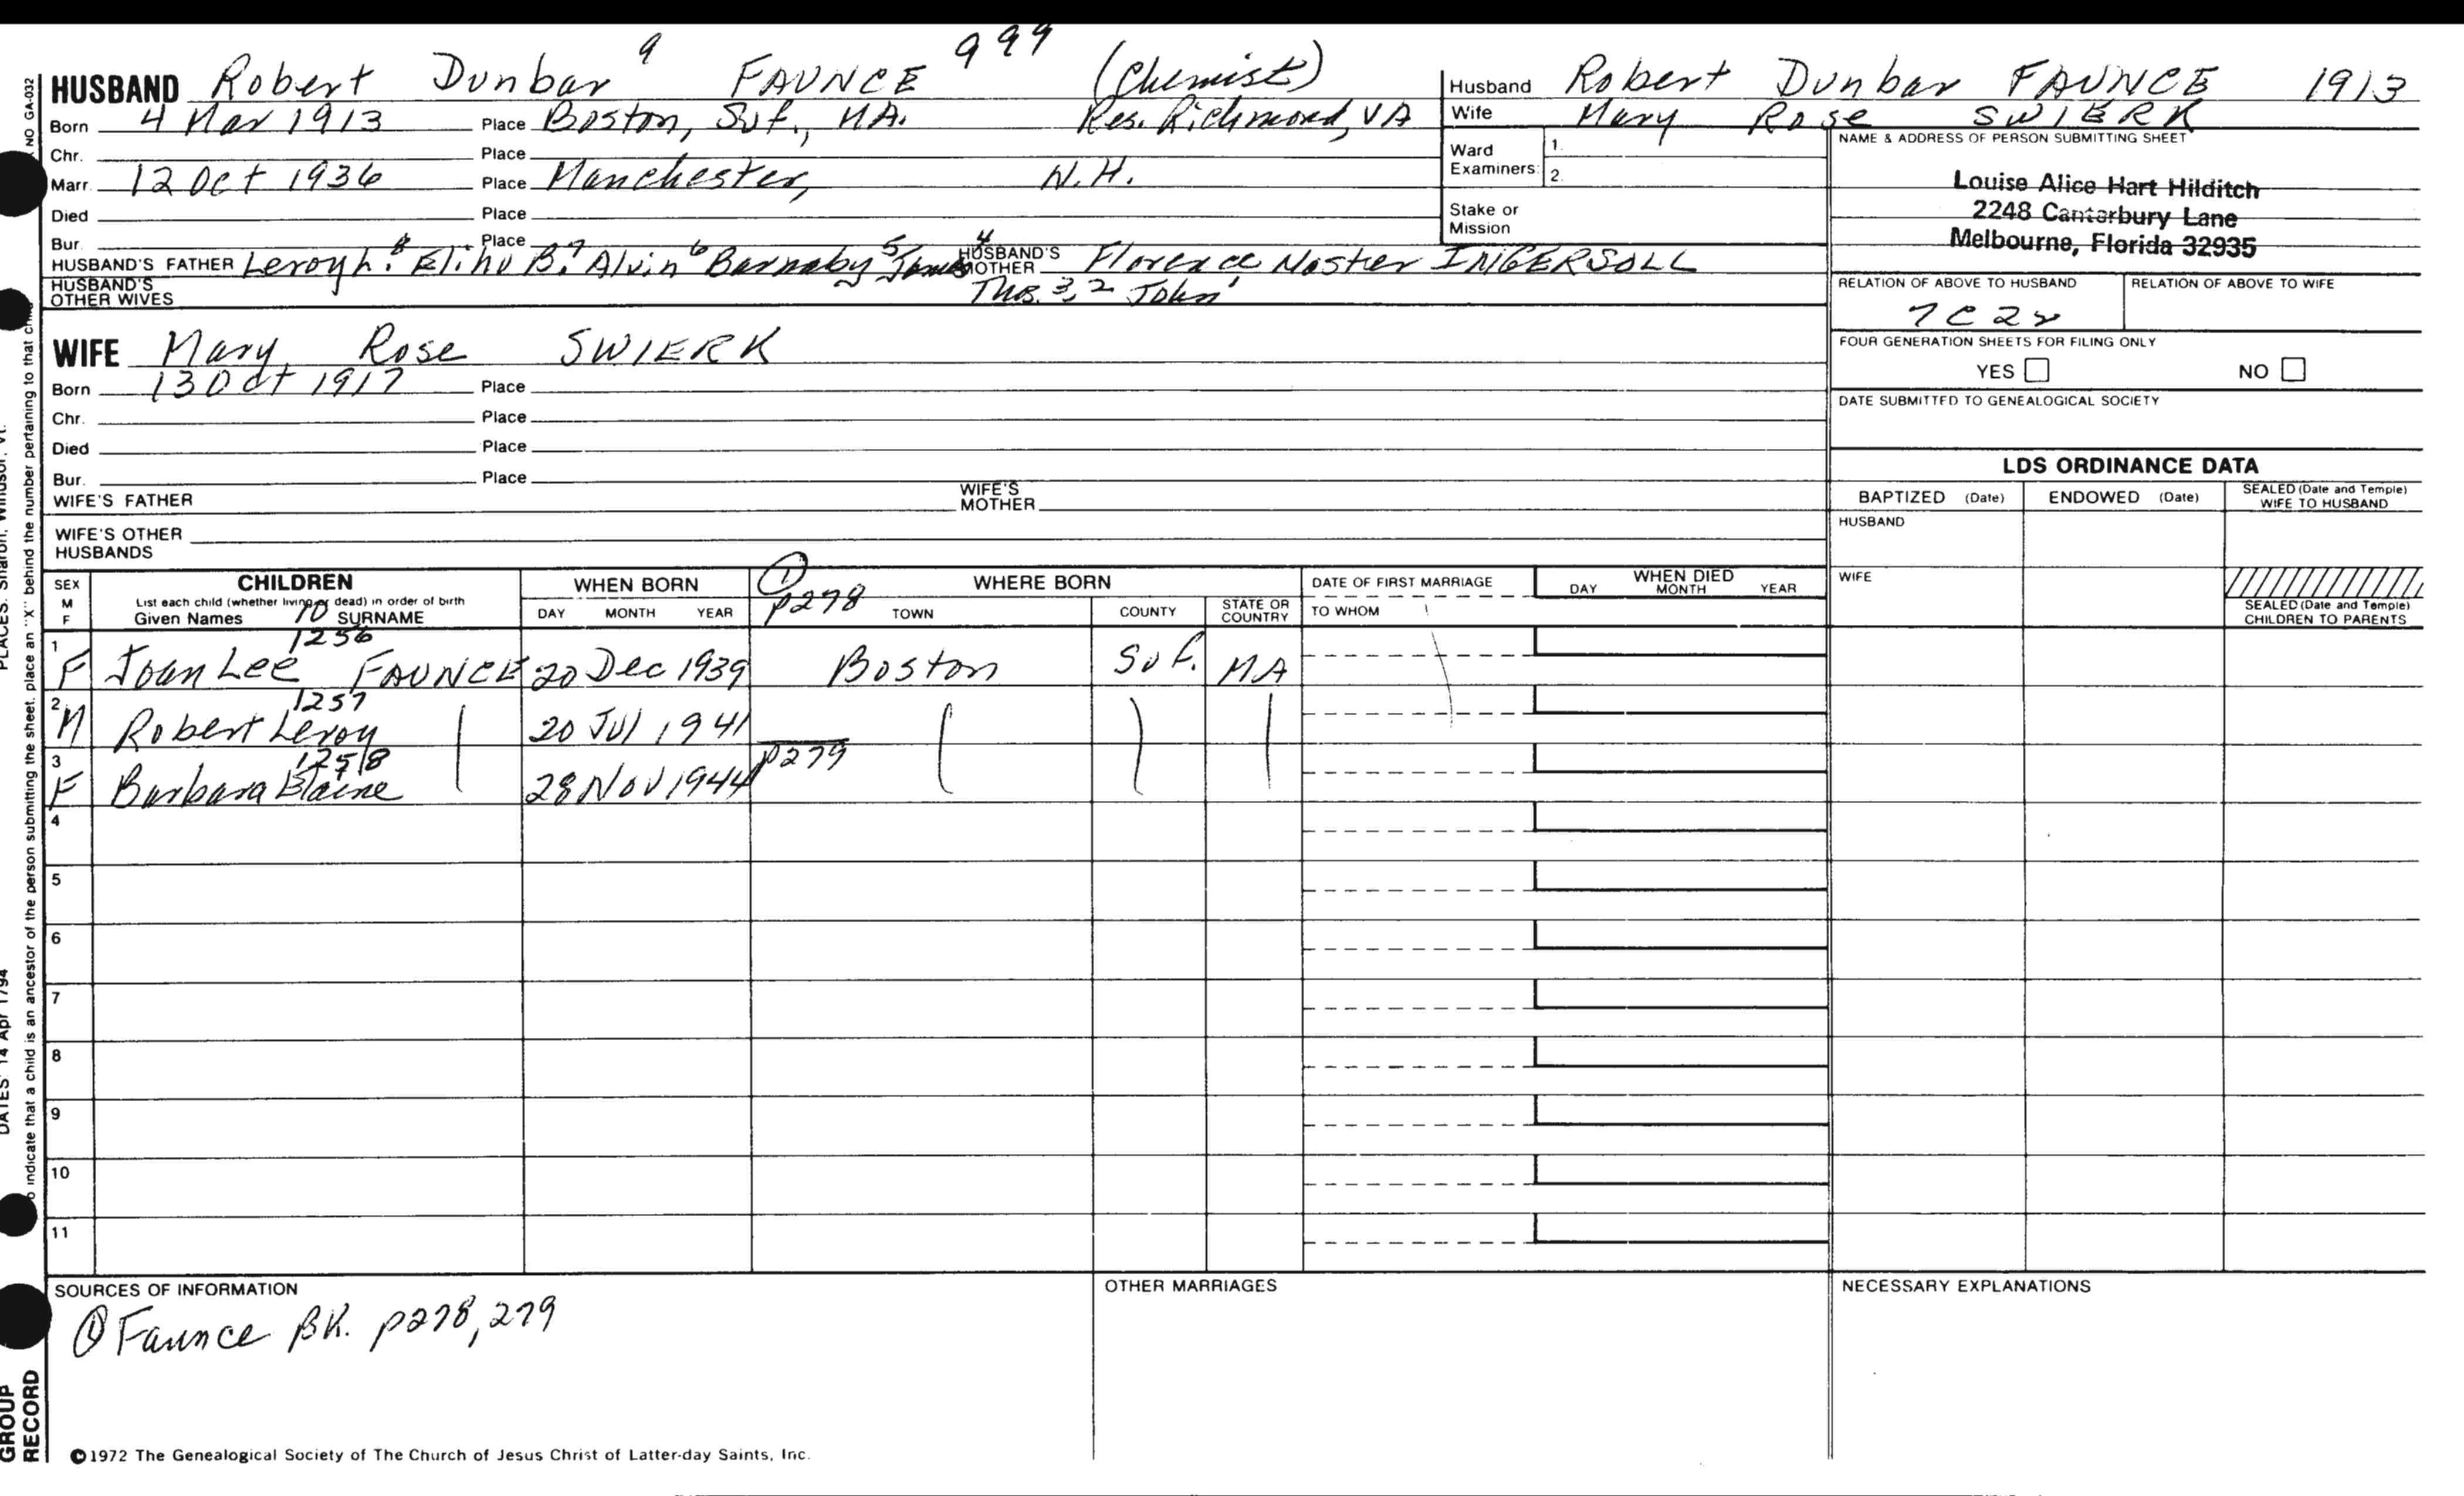 HUSBAND Robert Dunbar 9 FAUNCE 999 (Chemist)
Born 4 Mar 1913 Place Boston, Suf., MA. Res. Richmond, VA
Chr. Place
Marr. 12 Oct 1936 Place Manchester, N.H.
Died Place
Bur. Place
HUSBAND'S FATHER Leroy L. 8 Eliho B. 7 Alvin 6 Barnaby 5 James 4 HUSBAND'S MOTHER Florence INGERSOLL
HUSBAND'S OTHER WIVES Thos. 3, 2 John 1
Husband Robert Dunbar FAUNCE 1913
Wife Mary Rose SWIERK
Ward Examiners: 1.
2.
Stake or Mission
NAME & ADDRESS OF PERSON SUBMITTING SHEET
Louise Alice Hart Hilditch
2248 Canterbury Lane
Melbourne, Florida 32935
RELATION OF ABOVE TO HUSBAND RELATION OF ABOVE TO WIFE
7C2r
FOUR GENERATION SHEETS FOR FILING ONLY
YES NO
DATE SUBMITTED TO GENEALOGICAL SOCIETY
WIFE Mary Rose SWIERK
Born 13 Oct 1917 Place
Chr. Place
Died Place
Bur. Place
WIFE'S FATHER WIFE'S MOTHER
WIFE'S OTHER HUSBANDS
LDS ORDINANCE DATA
BAPTIZED (Date) ENDOWED (Date) SEALED (Date and Temple) WIFE TO HUSBAND
HUSBAND
WIFE
SEALED (Date and Temple) CHILDREN TO PARENTS
SEX M F
CHILDREN
List each child (whether living or dead) in order of birth
Given Names 10 SURNAME
WHEN BORN
DAY MONTH YEAR
1 p278
WHERE BORN
TOWN COUNTY STATE OR COUNTRY
DATE OF FIRST MARRIAGE
TO WHOM
WHEN DIED
DAY MONTH YEAR
1256
1 F Joan Lee FAUNCE 20 Dec 1939 Boston Suf. MA
1257
2 M Robert Leroy 20 Jul 1941
1258 p279
3 F Barbara Elaine 28 Nov 1944
4
5
6
7
8
9
10
11
SOURCES OF INFORMATION
① Faunce BK. p278, 279
OTHER MARRIAGES
NECESSARY EXPLANATIONS
©1972 The Genealogical Society of The Church of Jesus Christ of Latter-day Saints, Inc.
NO GA-032
o indicate that a child is an ancestor of the person submitting the sheet, place an "X" behind the number pertaining to that
PLACES: Sharon, Windsor, Vt.
DATES: 14 Apr 1794
GROUP RECORD